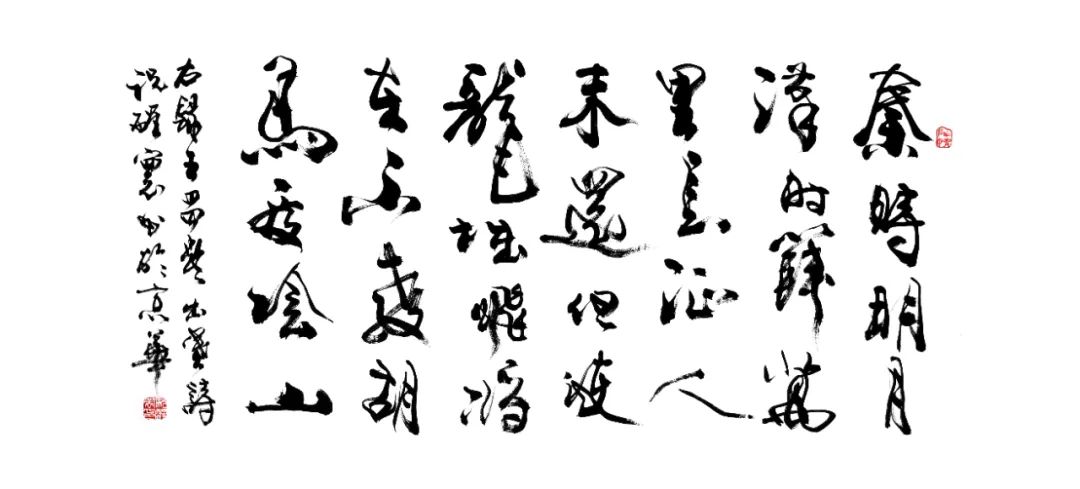 秦時明月
漢时關萬
里長征人
未還但使
龍城飛將
在不教胡
馬度陰山
右録王昌齡出塞詩
書於京華